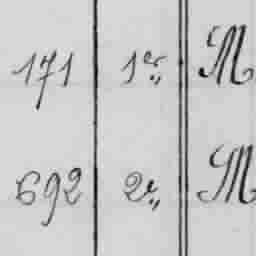 171 1er,, M
692 2e,, M